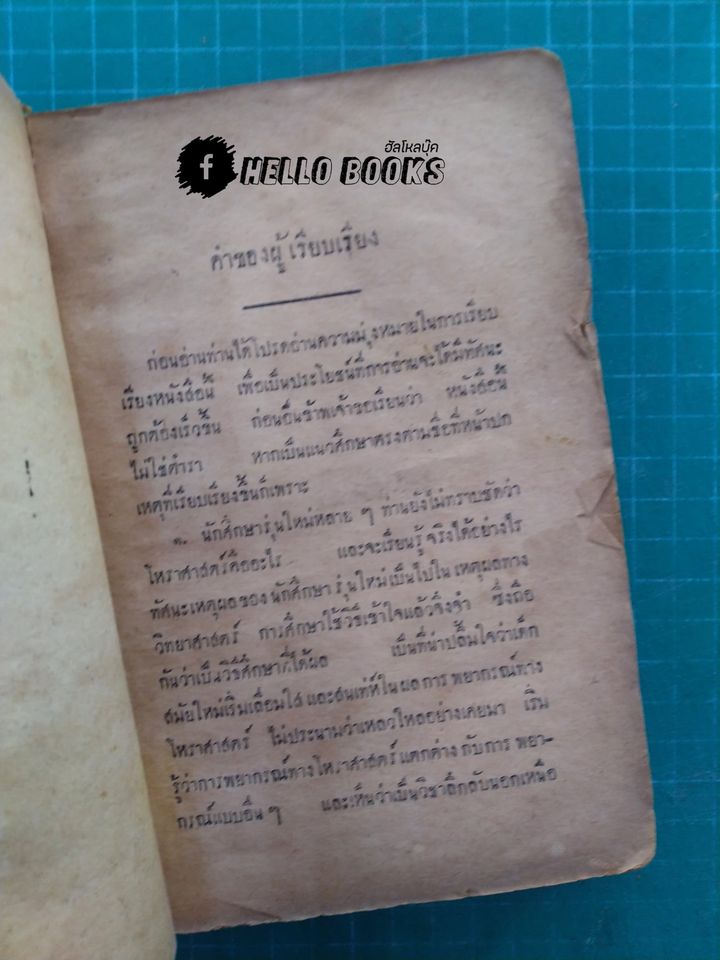 ฮัลโหลบุ๊ค
f HELLO BOOKS
คำของผู้เรียบเรียง
ก่อนอ่านท่านได้โปรดอ่านความมุ่งหมายในการเรียบ
เรียงหนังสือนี้ เพื่อเป็นประโยชน์ที่การอ่านจะได้มีทัศนะ
ถูกต้องเร็วขึ้น ก่อนอื่นข้าพเจ้าขอเรียนว่า หนังสือนี้
ไม่ใช่ตำรา หากเป็นแนวศึกษาตรงตามชื่อที่หน้าปก
เหตุที่เรียบเรียงขึ้นก็เพราะ
๑. นักศึกษารุ่นใหม่หลาย ๆ ท่านยังไม่ทราบชัดว่า
โหราศาสตร์คืออะไร และจะเรียนรู้จริงได้อย่างไร
ทัศนะเหตุผลของนักศึกษารุ่นใหม่เป็นไปในเหตุผลทาง
วิทยาศาสตร์ การศึกษาใช้วิธีเข้าใจแล้วจึงจำ ซึ่งถือ
กันว่าเป็นวิธีศึกษาที่ได้ผล เป็นที่น่าปลื้มใจว่าเด็ก
สมัยใหม่เริ่มเลื่อมใส และสนเท่ห์ในผลการพยากรณ์ทาง
โหราศาสตร์ ไม่ประนามว่าเหลวไหลอย่างเคยมา เริ่ม
รู้ว่าการพยากรณ์ทางโหราศาสตร์แตกต่างกับการ พยา-
กรณ์แบบอื่น ๆ และเห็นว่าเป็นวิชาลึกลับนอกเหนือ